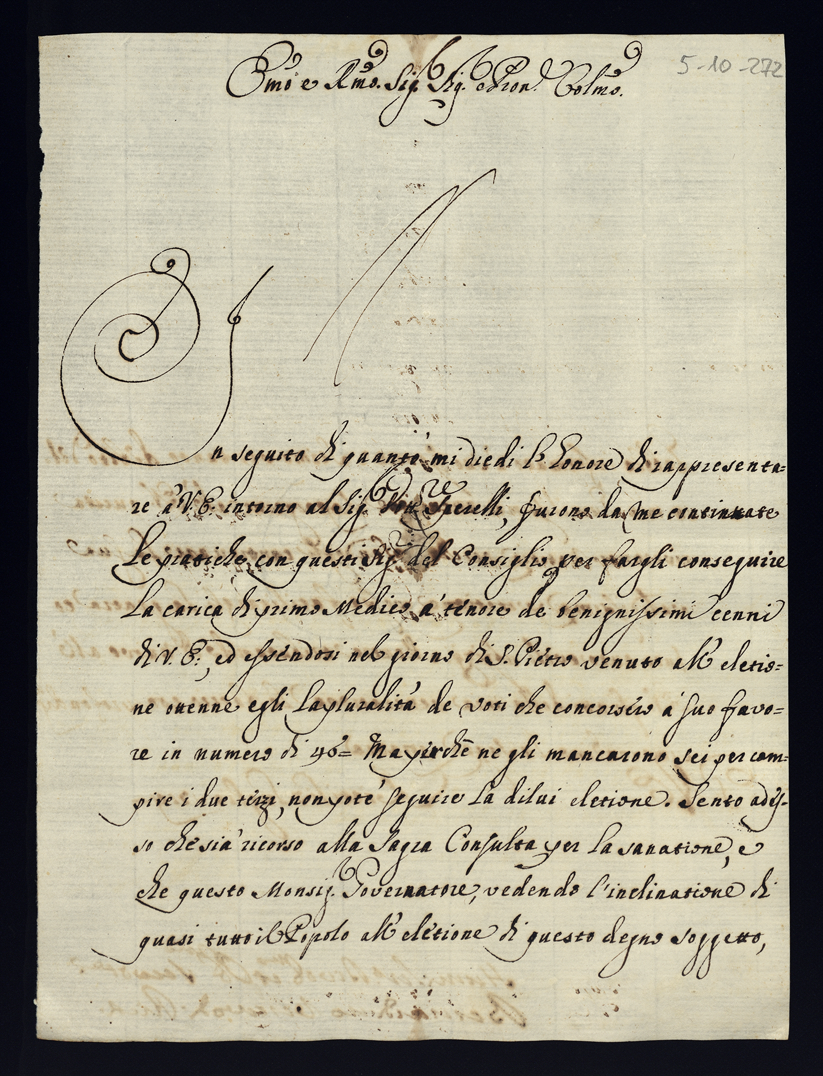 5-10-272
Emo e Rmo. Sig. Sig. e Pron. Colmo.
In seguito di quanto mi diedi l'honore di rappresenta=
re à V.E. intorno al Sig. Sperelli, furono da me continuate
le pratiche con questi Sig. del Consiglio per fargli conseguire
la carica di primo Medico a' tenore de benignissimi cenni
di V.E., ed essendosi nel giorno di S. Pietro venuto all' eletio=
ne ottenne egli la pluralità de voti che concorsero a' suo favo=
re in numero di 46= Ma perche ne gli mancarono sei per com=
pire i due terzi, non potè seguire la dilui eletione. Sento ades-
so che sia ricorso alla Sagra Consulta per la sanatione, e
che questo Monsig. Governatore, vedendo l'inclinatione di
quasi tutto il Popolo all' eletione di questo degno soggetto,